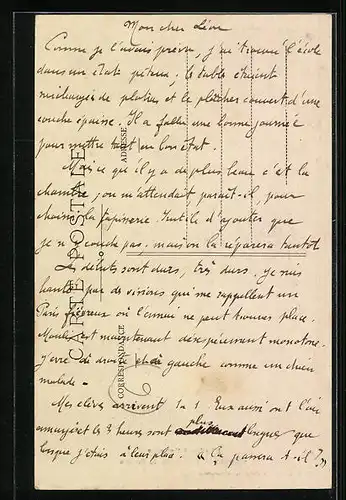 Mon cher Léon
Comme je l'avais prévu, j'ai trouvé l'école
dans un état piteux, les tables étaient
surchargées de plâtras et le plancher couvert d'une
couche épaisse. Il a fallu une bonne journée
pour mettre tout en bon état.
Mais ce qu'il y a de plus beau c'est la
chambre, on m'attendait paraît-il, pour
choisir la tapisserie. Inutile d'ajouter que
je n'y couche pas, maison la réparera tantôt
Les débuts sont durs, très durs, je suis
hanté par des visions qui me rappellent un
Paris fiévreux où l'ennui ne peut trouver place.
est maintenant désespérément monotone.
j'erre de droite et de gauche comme un chien
malade.
Mes élèves arrivent 1 à 1 Eux aussi ont l'air
et les 3 heures sont plus longues que
lorsque j'étais à leur place. Ça passera t-il ?
CARTE POSTALE
CORRESPONDANCE
ADRESSE